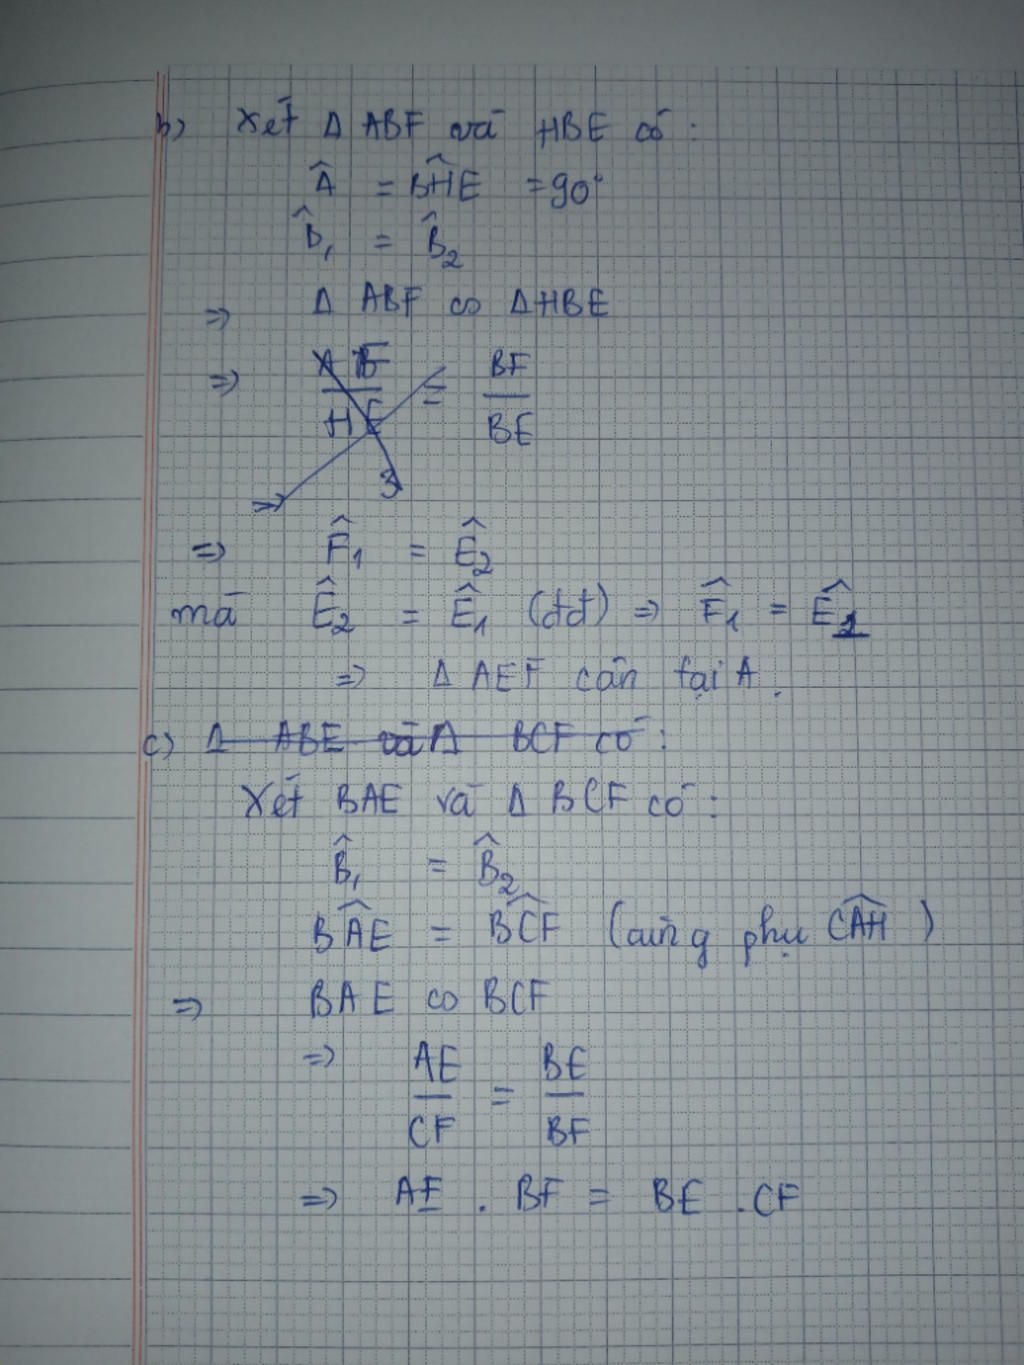 b) Xét Δ ABF và HBE có :
Â = BĤE = 90°
B̂₁ = B̂₂
⇒ Δ ABF ∽ Δ HBE
⇒ = BF/BE
⇒ F̂₁ = Ê₂
mà Ê₂ = Ê₁ (đđ) ⇒ F̂₁ = Ê₁
⇒ Δ AEF cân tại A.
c) Δ ABE và Δ BCF có :
Xét BAE và Δ BCF có :
B̂₁ = B̂₂
BÂE = BĈF (cùng phụ CÂH)
⇒ BAE ∽ BCF
⇒ AE/CF = BE/BF
⇒ AE . BF = BE . CF